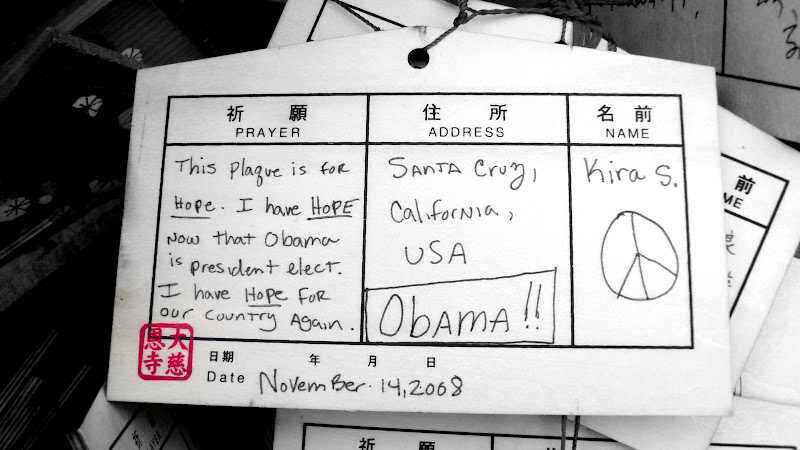 祈 願
PRAYER
This plaque is for
Hope. I have HOPE
now that Obama
is president elect.
I have Hope for
our country again.
住 所
ADDRESS
Santa Cruz,
California,
USA
Obama!!
名 前
NAME
Kira S.
大慈
恩寺
日期 年 月 日
Date November 14, 2008
前
ME
祈 願
PRAYER